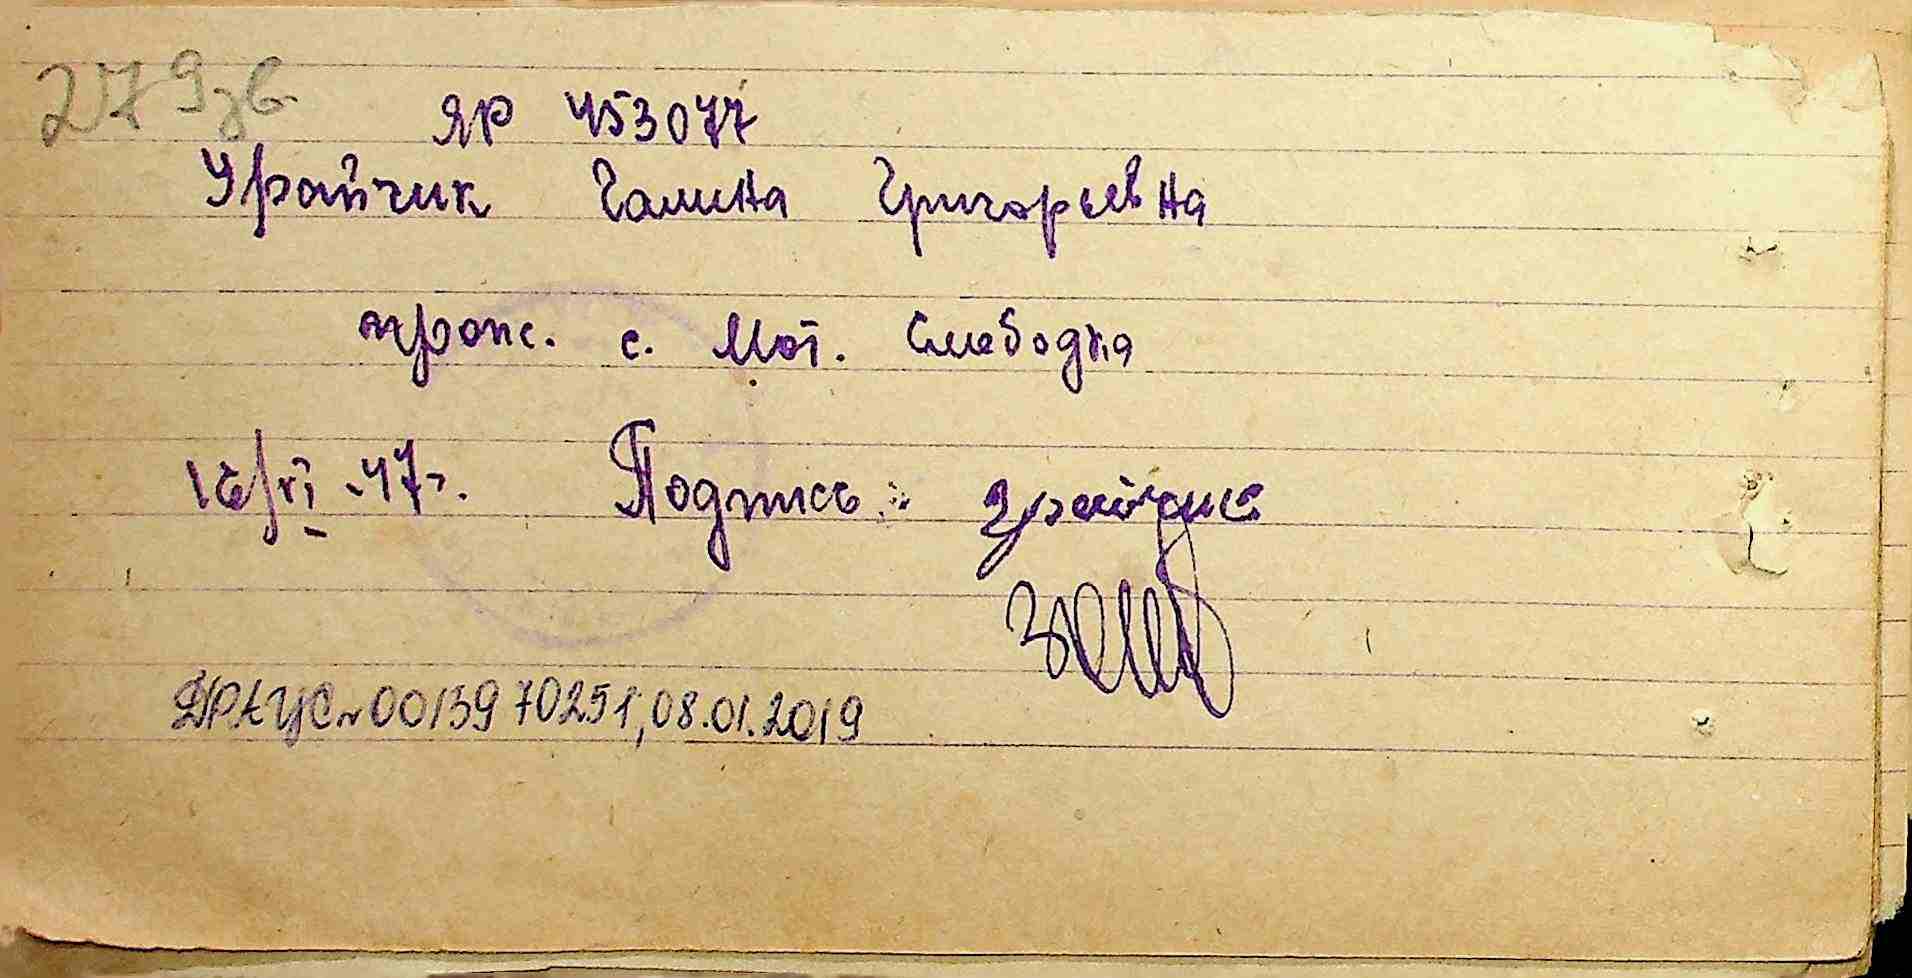 279 зв.
ЯР 453077
Урайчик Галина Григорьевна
прож. с. Мот. Слободка
16/VI-47г. Подпись: Урайчик
ДРАЦС № 00139 70251, 08.01.2019